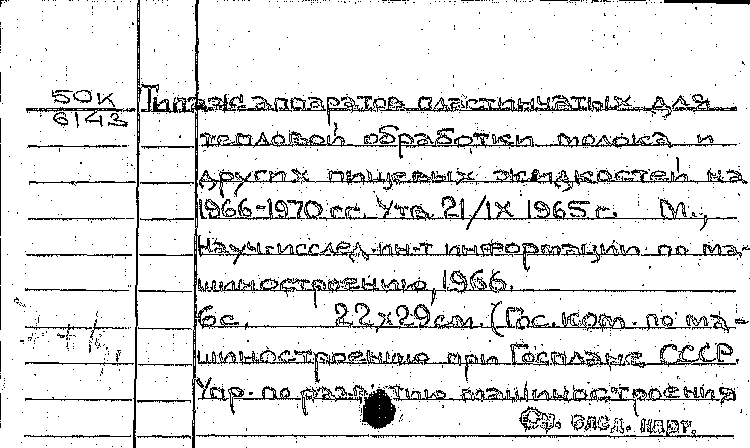 50К
6142
Типаж аппаратов пластинчатых для
тепловой обработки молока и
других пищевых жидкостей на
1966-1970 гг. Утв. 21/IX 1965 г. М.,
Науч.-исслед. ин-т информации по ма-
шиностроению, 1966.
6с. 22х29 см. (Гос. ком. по ма-
шиностроению при Госплане СССР.
Упр. по развитию машиностроения
См. след. карт.